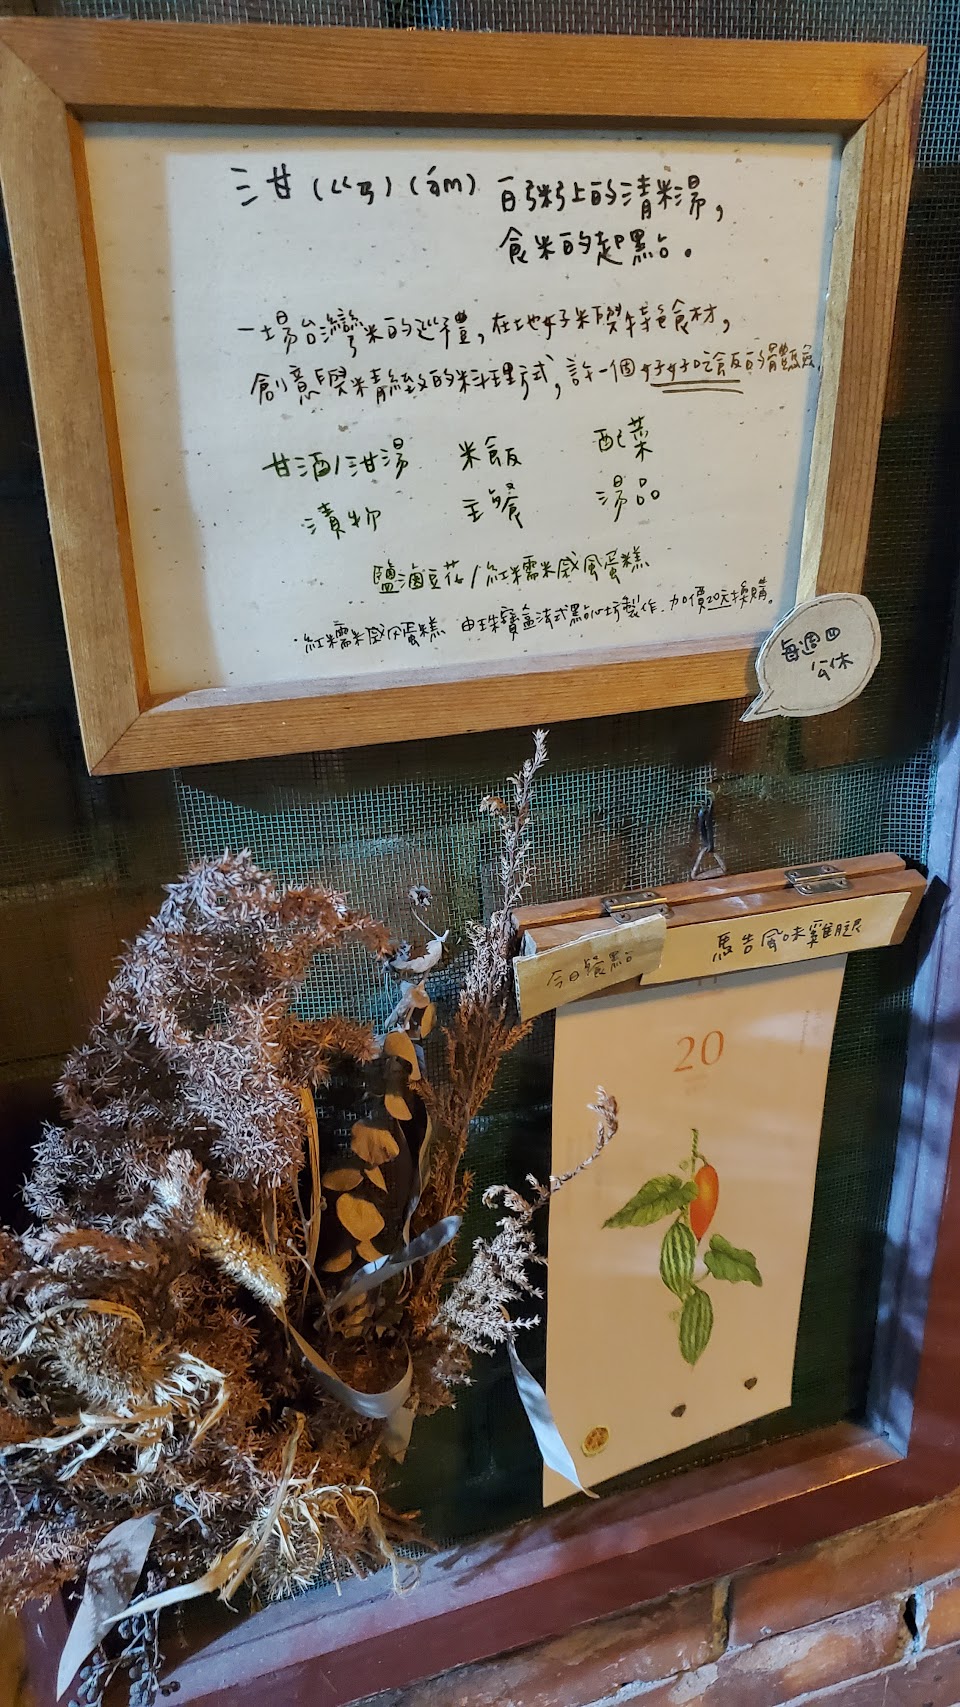 泔(ㄍㄢ)(ám) 白粥上的清米湯,
食米的起點。
一場台灣米的巡禮,在地好米與特色食材,
創意與精緻的料理方式,許一個好好吃飯的體驗
甘酒/泔湯 米飯 配菜
漬物 主餐 湯品
鹽滷豆花/紅糯米戚風蛋糕
紅糯米戚风蛋糕 由珠寶盒法式點心坊製作.加價20元換購。
每週四
公休
今日餐點
馬告風味雞腿
20